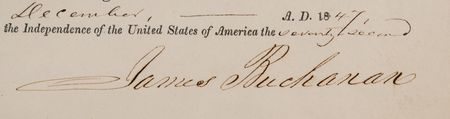 December, A. D. 1847,
the Independence of the United States of America the seventy second
James Buchanan